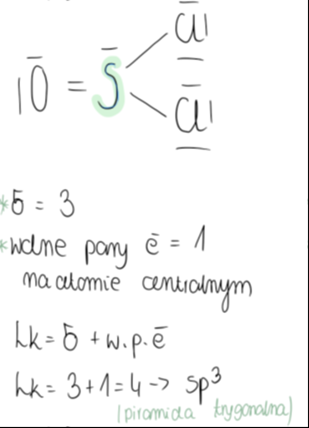 Cl
O = S
Cl
*σ = 3
*wolne pary ē = 1
na atomie centralnym
Lk = σ + w.p.ē
Lk = 3+1=4 -> sp³
(piramida trygonalna)